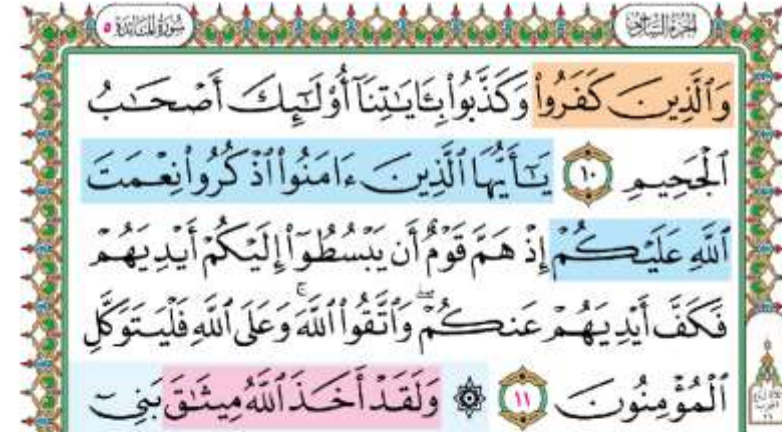 سُورَةُ المَائِدَةِ ٥
الجُزْءُ السَّادِسُ
وَٱلَّذِينَ كَفَرُواْ وَكَذَّبُواْ بِـَٔايَٰتِنَآ أُوْلَٰٓئِكَ أَصْحَٰبُ
ٱلْجَحِيمِ ١٠ يَٰٓأَيُّهَا ٱلَّذِينَ ءَامَنُواْ ٱذْكُرُواْ نِعْمَتَ
ٱللَّهِ عَلَيْكُمْ إِذْ هَمَّ قَوْمٌ أَن يَبْسُطُوٓاْ إِلَيْكُمْ أَيْدِيَهُمْ
فَكَفَّ أَيْدِيَهُمْ عَنكُمْۖ وَٱتَّقُواْ ٱللَّهَۚ وَعَلَى ٱللَّهِ فَلْيَتَوَكَّلِ
ٱلْمُؤْمِنُونَ ١١ ۞ وَلَقَدْ أَخَذَ ٱللَّهُ مِيثَٰقَ بَنِيٓ